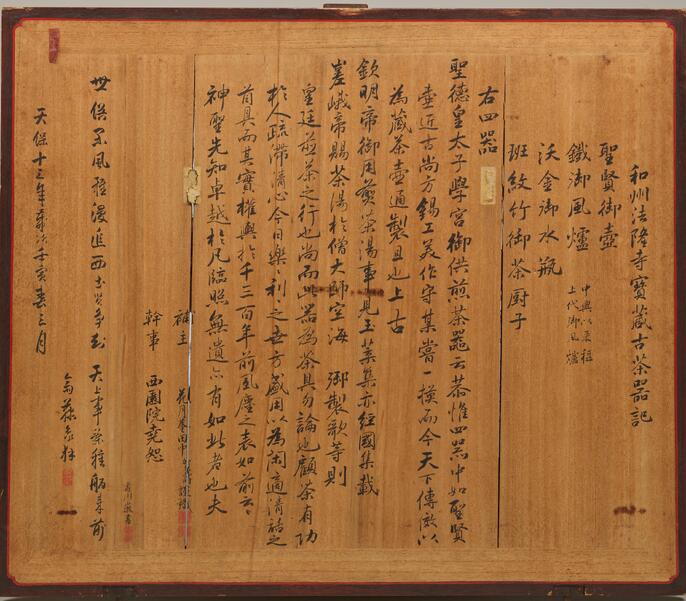 和州法隆寺寶藏古茶器記
聖賢御壺
鐵御風爐 中興以來稱上代御風爐
沃金御水瓶
班紋竹御茶廚子
右四器
聖德皇太子學宮御供煎茶器云恭惟四器中如聖賢
壺近古尚方錫工美作守某嘗一摸而今天下傳效以
為藏茶壺通製且也上古
欽明帝御用煎茶湯事見玉葉集亦經國集載
嵯峨帝賜茶湯於僧大師空海 御製歌等則
皇廷煎茶之行也尚而此器為茶具勿論也顧茶有功
於人疏滯清心今日樂々利之世方盛用以為閑適清話之
首具而其實權輿於千三百年前風塵之表如前云々
神聖先知卓越於凡臨照無遺亦有如此者也夫
幹事 西園院堯恕
天保十三年 壬寅春三月